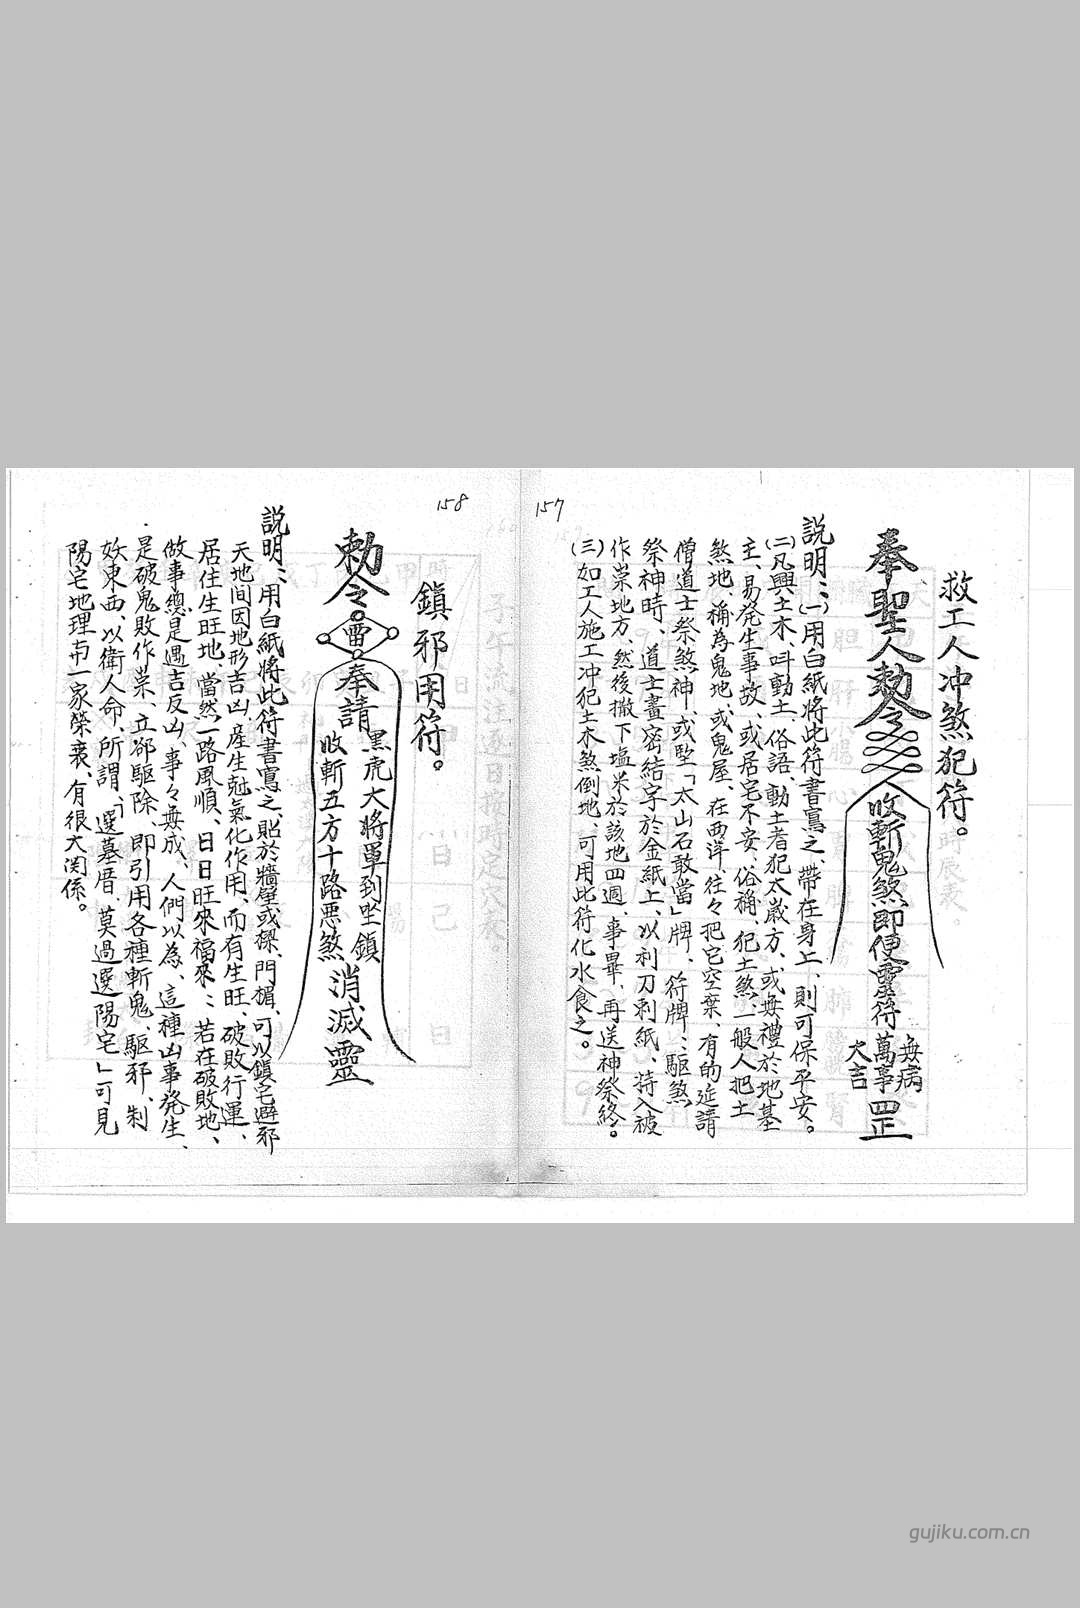 157
救工人冲煞犯符。
奉聖人勅令收斬鬼煞即便靈符
無病
萬事
大吉
罡
説明：㈠用白紙將此符書寫之、帶在身上、則可保平安。
㈡凡興土木、叫動土、俗語、動土者犯太歲方、或無禮於地基
主、易発生事故、或居宅不安、俗稱、犯土煞、一般人把土
煞地、稱為鬼地、或鬼屋、在西洋、往々把它空棄、有的延請
僧道士祭煞神、或竪「太山石敢當」牌、符牌：驅煞
祭神時、道士畫密結字於金紙上、以利刀刺紙、持入被
作祟地方、然後撒下塩米於該地四週、事畢、再送神祭終。
㈢如工人施工冲犯土木煞倒地、可用此符化水食之。
158
鎮邪用符。
勅令。雷。奉請
黑虎大將軍到坐鎮
收斬五方十路惡煞
消滅靈
説明：用白紙將此符書寫之、貼於牆壁或樑、門楣、可以鎮宅避邪
天地間因地形吉凶、産生尅氣化作用、而有生旺、破敗行運、
居住生旺地、當然一路風順、日日旺來福來：若在破敗地、
做事總是遇吉反凶、事々無成、人們以為、這種凶事発生、
是破鬼敗作祟、立卻驅除、即引用各種斬鬼、驅邪、制
妖東西、以衛人命、所謂、「選墓厝、莫過選陽宅」可見
陽宅地理与一家榮衰、有很大関係。
gujiku.com.cn